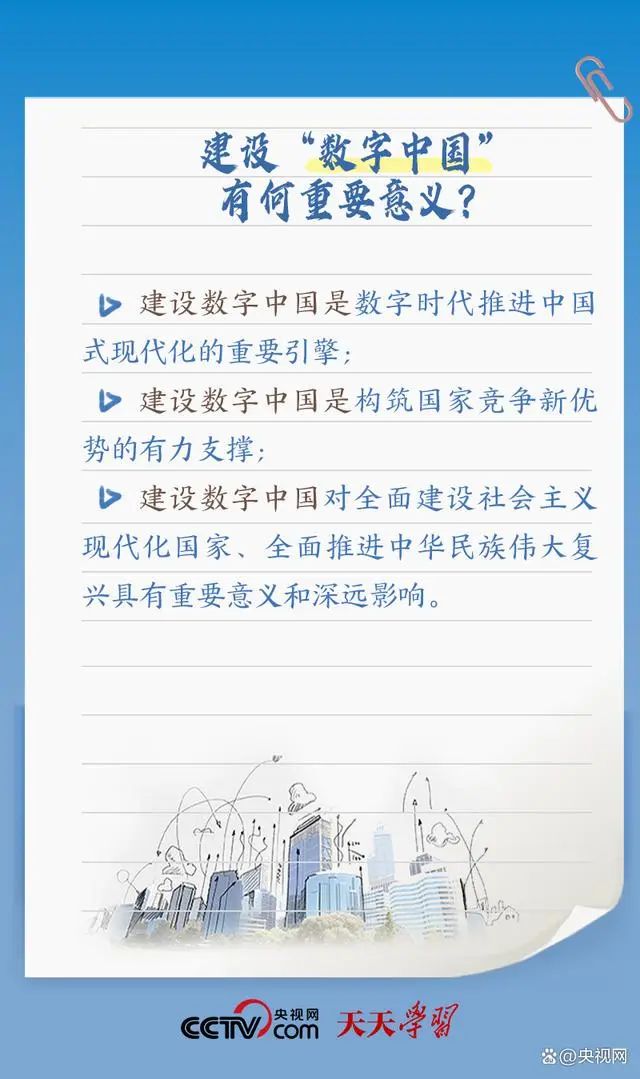 建设“数字中国”
有何重要意义？
建设数字中国是数字时代推进中国
式现代化的重要引擎；
建设数字中国是构筑国家竞争新优
势的有力支撑；
建设数字中国对全面建设社会主义
现代化国家、全面推进中华民族伟大复
兴具有重要意义和深远影响。
CCTV.com 央视网 天天学習
@央视网